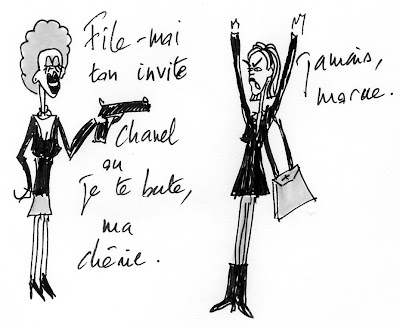 File-moi
ton invite
Chanel
ou
je te bute,
ma
chérie.
Jamais,
morue.